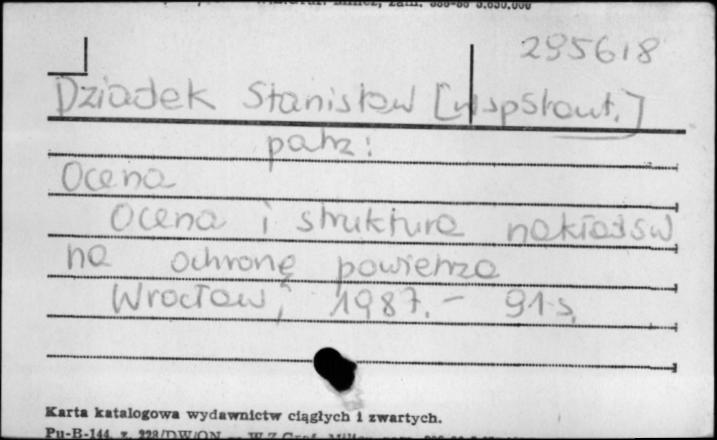 zam. 5.850.000
295618
Dziadek Stanisław [współaut.]
patrz:
Ocena
Ocena i struktura nakładów
na ochronę powietrza
Wrocław, 1987. - 91 s.
Karta katalogowa wydawnictw ciągłych i zwartych.
Pu-B-144, z. 228/DW/ON